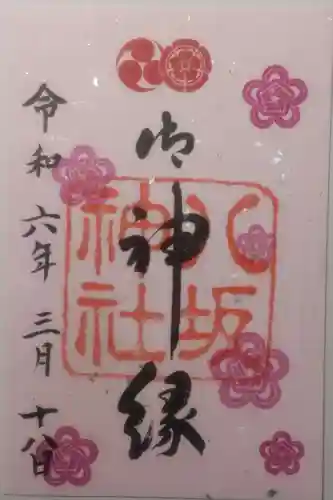 御神縁
八坂神社
令和六年三月十八日